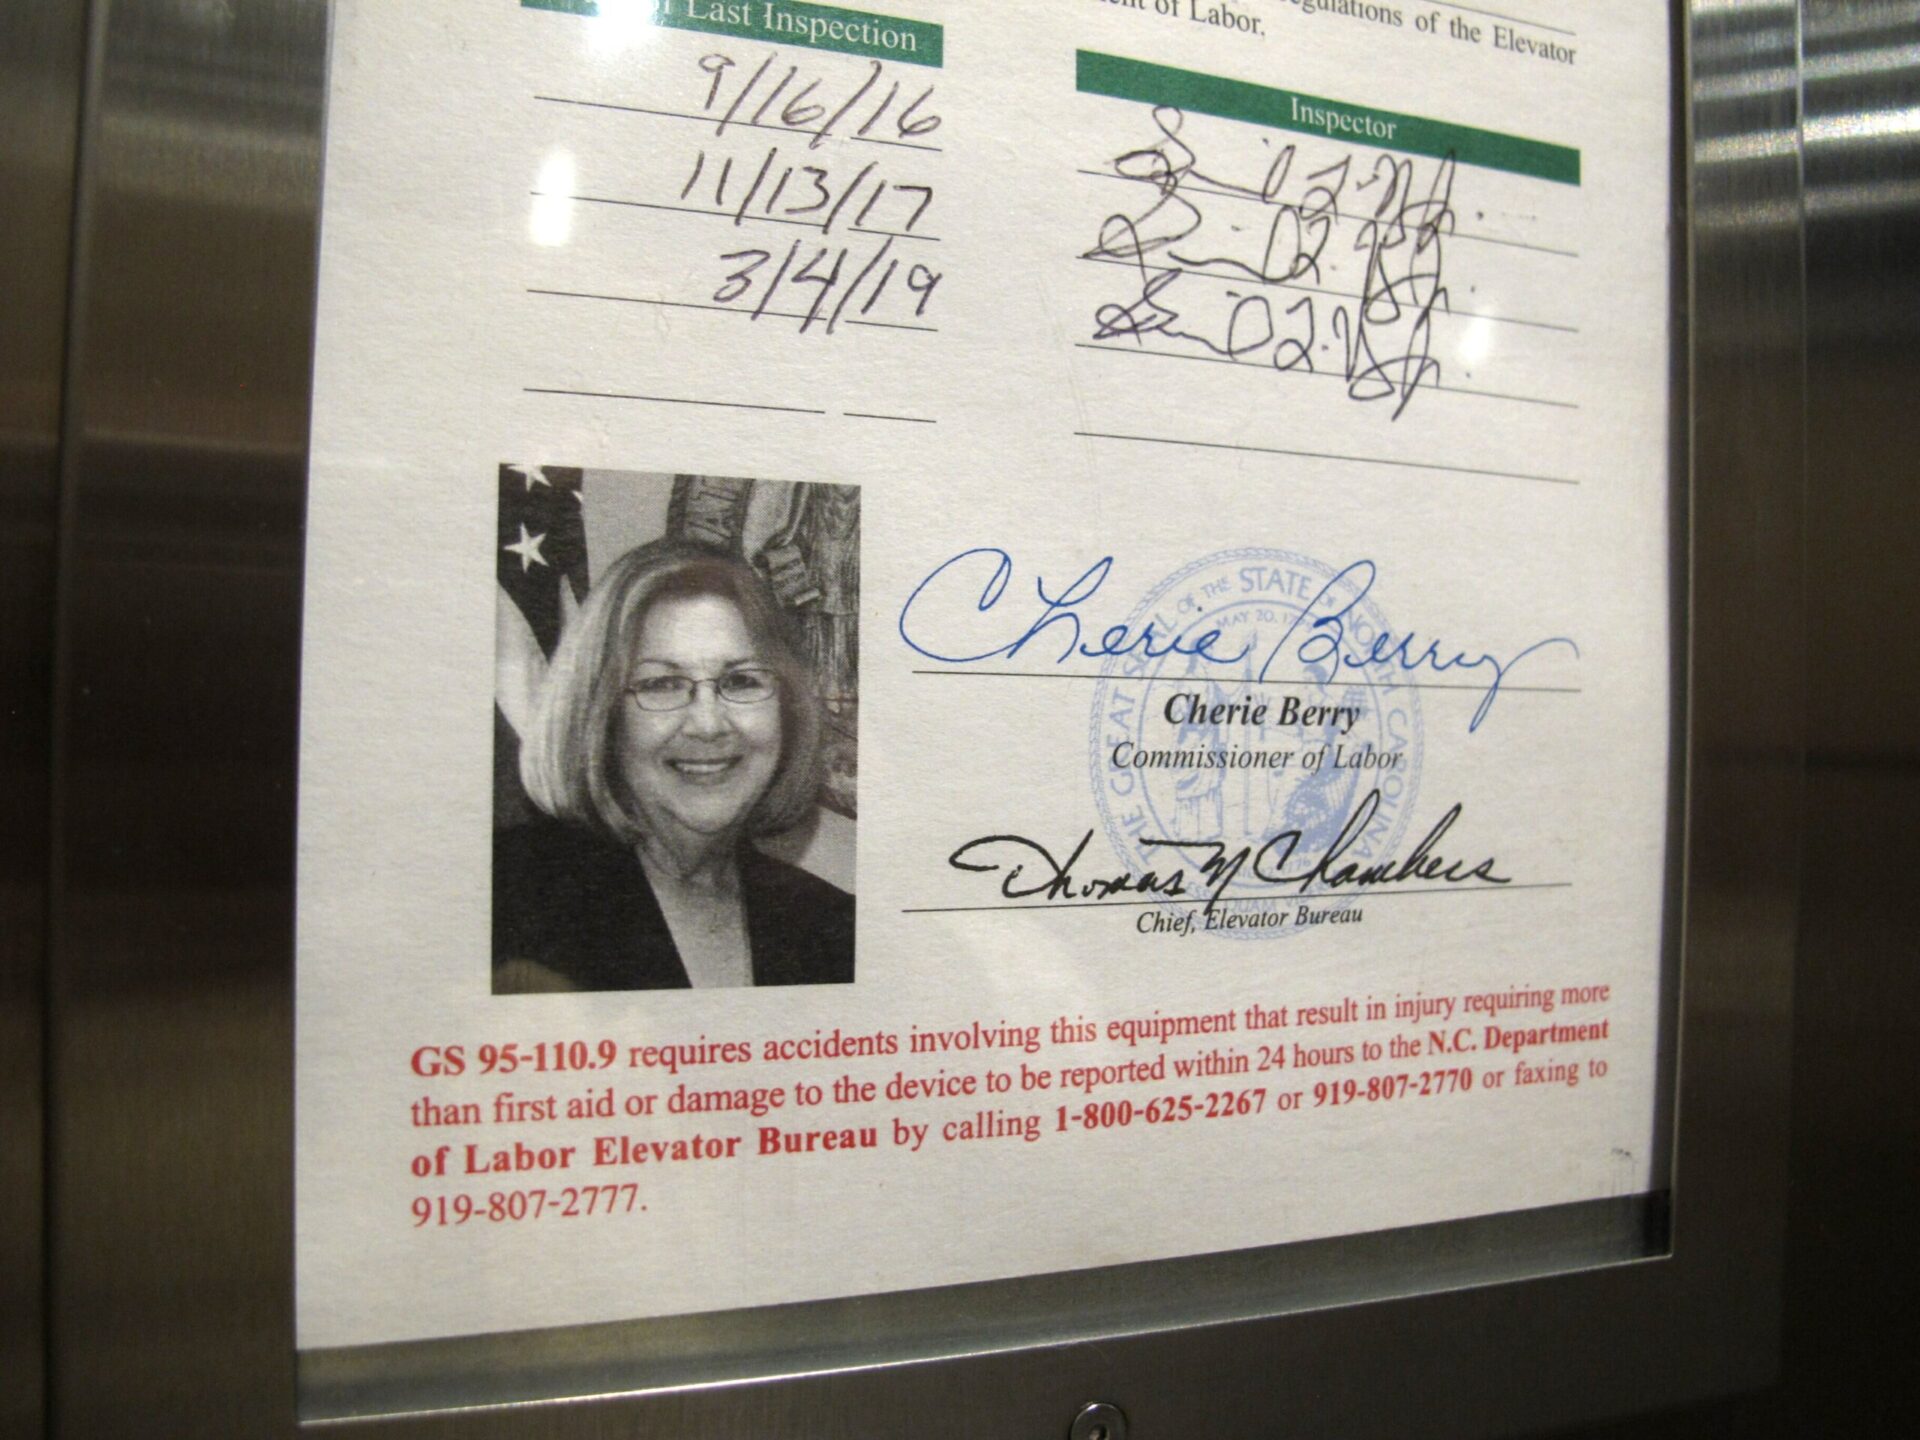 Last Inspection
regulations of the Elevator
of Labor.
Inspector
9/16/16
11/13/17
3/4/19
Cherie Berry
Cherie Berry
Commissioner of Labor
Thomas M Chambers
Chief, Elevator Bureau
THE GREAT SEAL OF THE STATE OF NORTH CAROLINA
MAY 20, 1775
GS 95-110.9 requires accidents involving this equipment that result in injury requiring more
than first aid or damage to the device to be reported within 24 hours to the N.C. Department
of Labor Elevator Bureau by calling 1-800-625-2267 or 919-807-2770 or faxing to
919-807-2777.